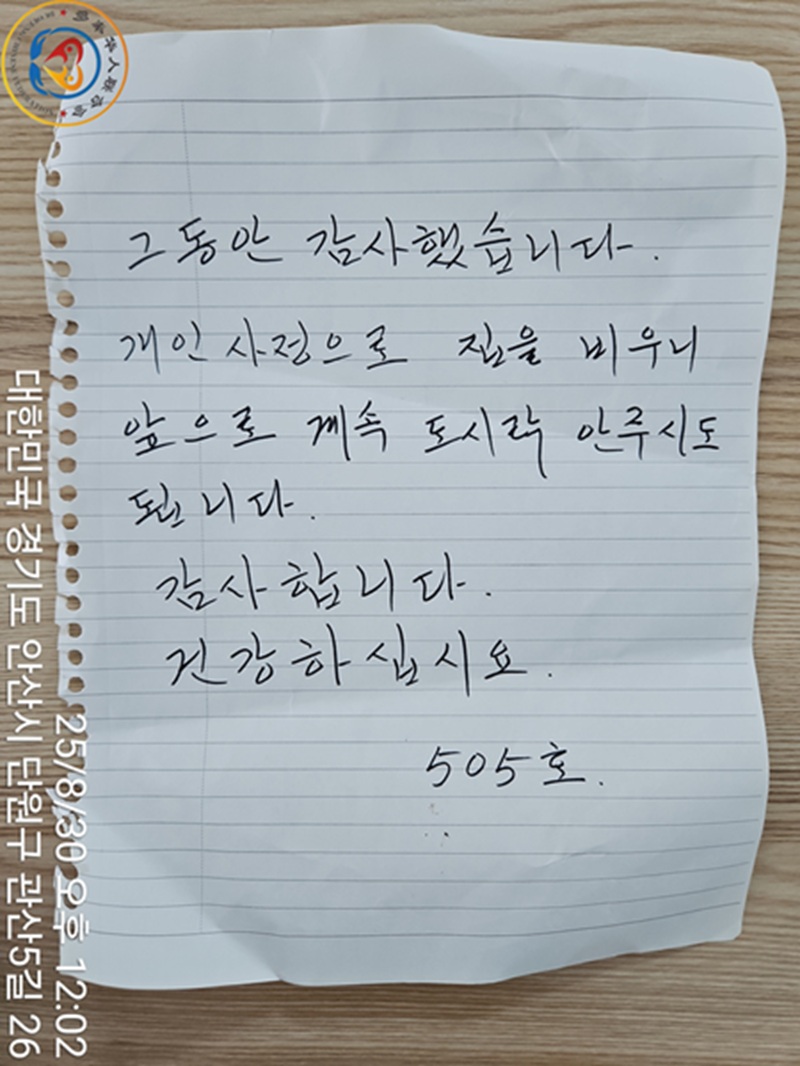 그동안 감사했습니다.
개인사정으로 집을 비우니
앞으로 계속 도시락 안주시도
됩니다.
감사합니다.
건강하십시요.
505호.
25/8/30 오후 12:02
대한민국 경기도 안산시 단원구 관산5길 26